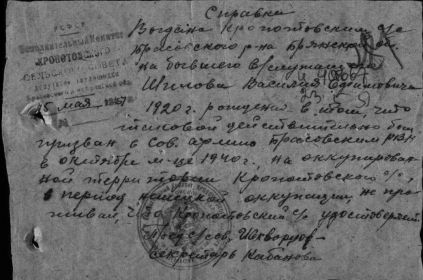 РСФСР
Исполнительный Комитет
КРОПОТОВСКОГО
СЕЛЬСКОГО СОВЕТА
депутатов трудящихся
15 мая 1957
Справка
Выдана Кропотовским с/с
Брасовского р-на Брянской об.
на бывшего
Василия Ефимовича
1920 г. рождения в том, что
таковой действительно был
призван в Сов. армию Брасовским РВК
в октябре м-це 1940 г., на оккупирован
ной территории Кропотовского с/с,
в период немецкой оккупации не про
живал, что Кропотовский с/с удостоверяет
Пред. с/сов.
Секретарь Кабанова